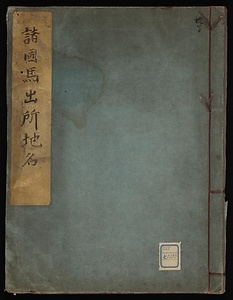 諸國馬出所地名